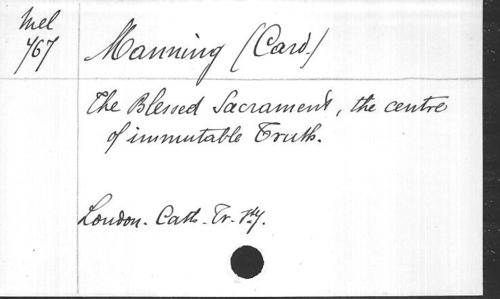 Mel
767
Manning (Card.)
The Blessed Sacrament, the centre
of immutable Truth.
London. Cath. Tr. Sty.